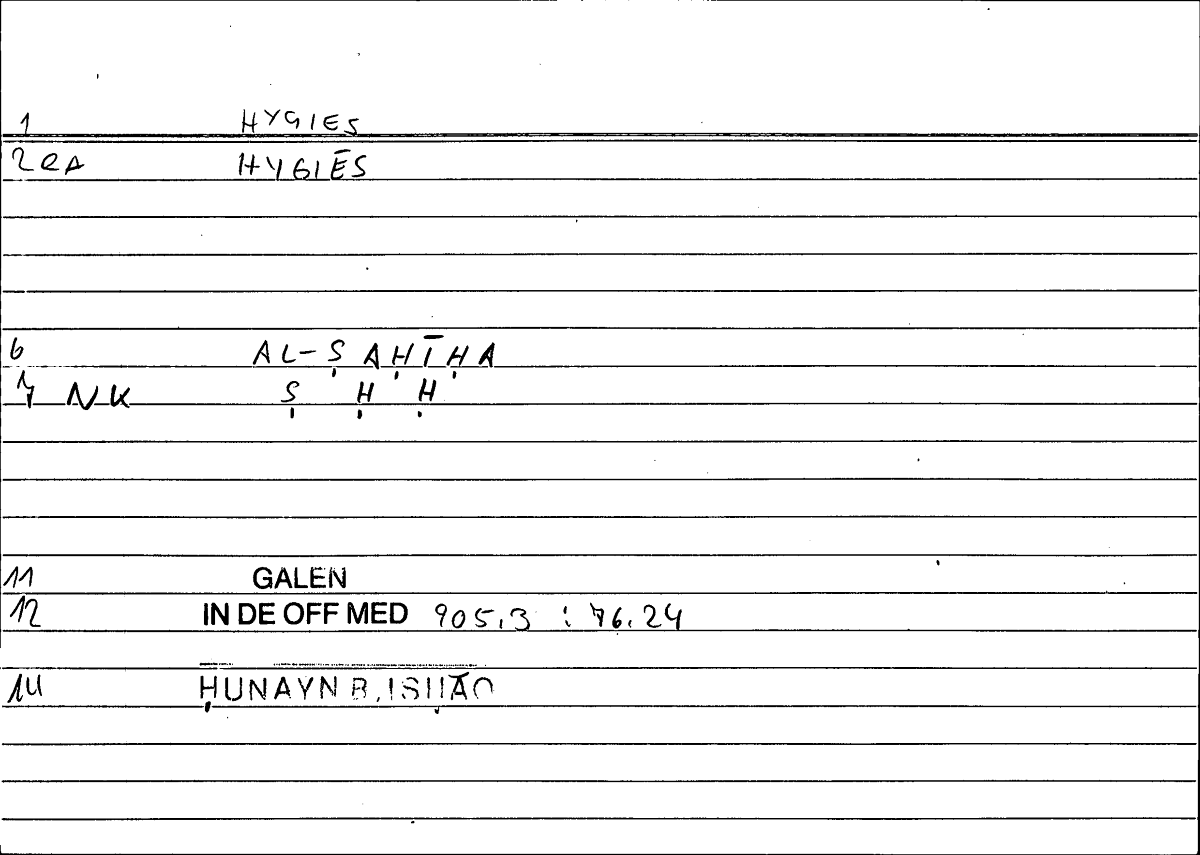 1 HYGIES
2 QA HYGIĒS
6 AL-ṢAḤĪḤA
7 NK Ṣ Ḥ Ḥ
11 GALEN
12 IN DE OFF MED 905,3 : 76.24
14 ḤUNAYN B. ISḤĀQ